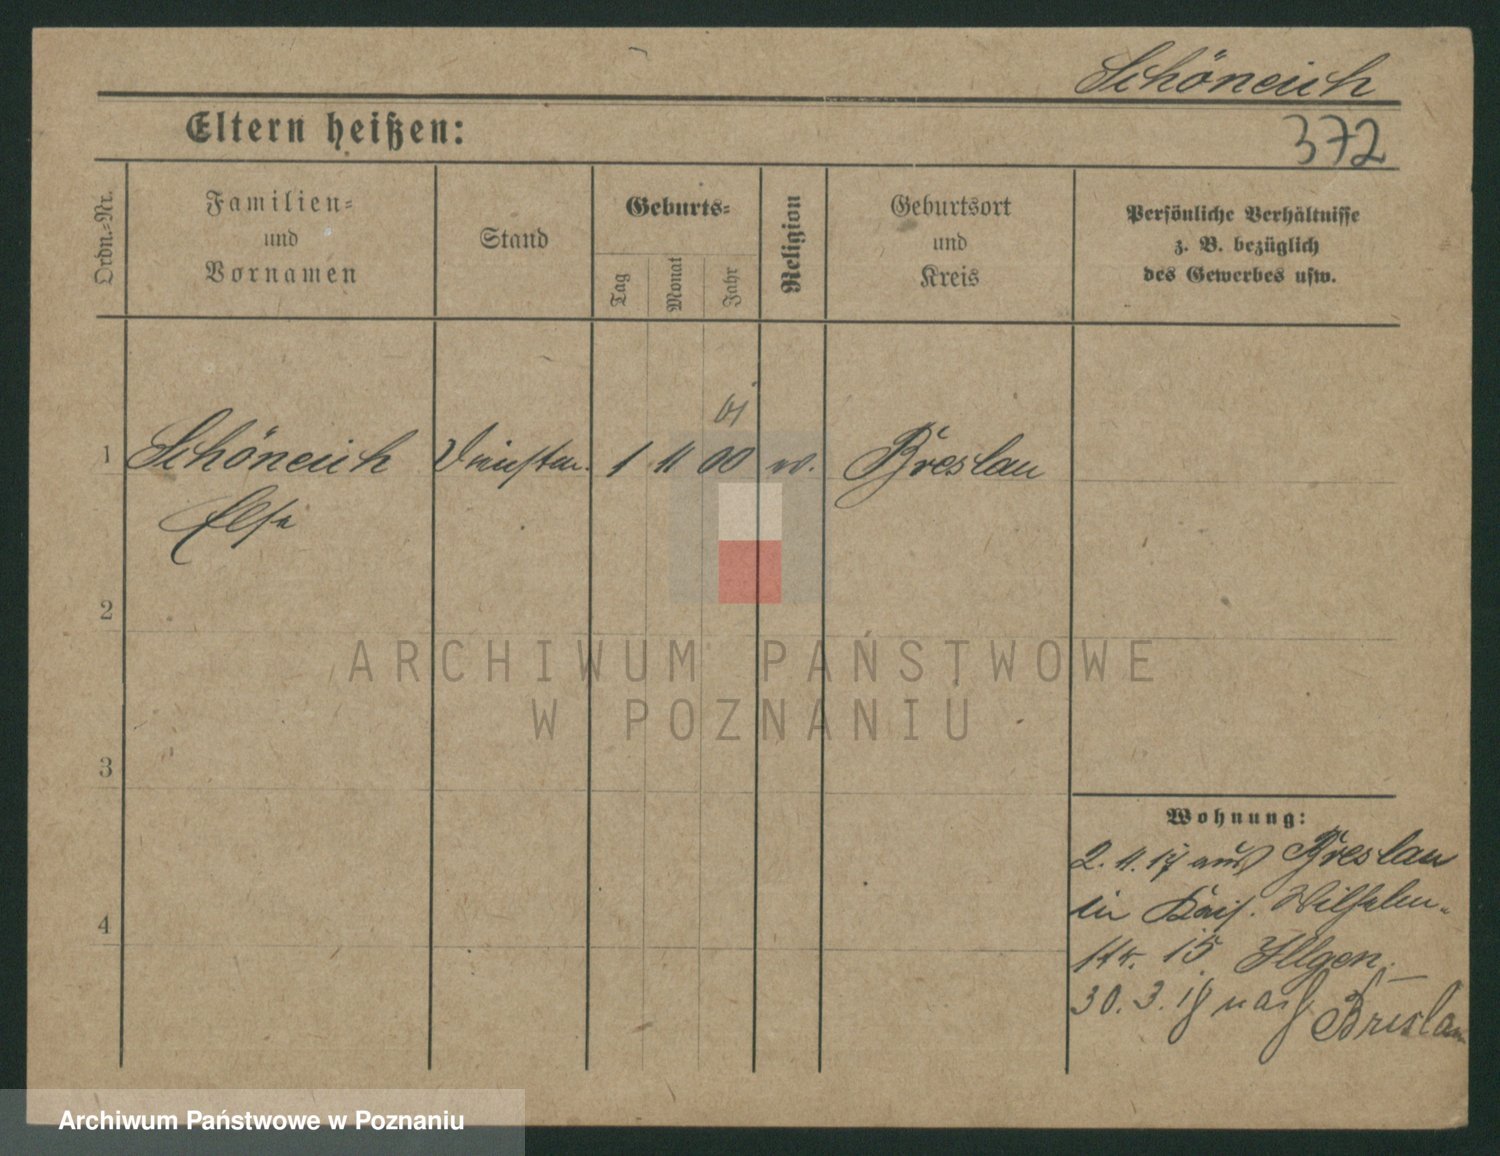 Schöneich
Eltern heißen:
372
Ordn.-Nr.
Familien-
und
Vornamen
Stand
Geburts-
Tag
Monat
Jahr
Religion
Geburtsort
und
Kreis
Persönliche Verhältnisse
z. B. bezüglich
des Gewerbes usw.
1
Schöneich
1 11 00
Breslau
Else
2
ARCHIWUM PAŃSTWOWE
W POZNANIU
3
Wohnung:
2. 11. 17 aus Breslau
in Kais. Wilhelm-
str. 15 Illgen.
4
30. 3. 18 nach Breslau
Archiwum Państwowe w Poznaniu